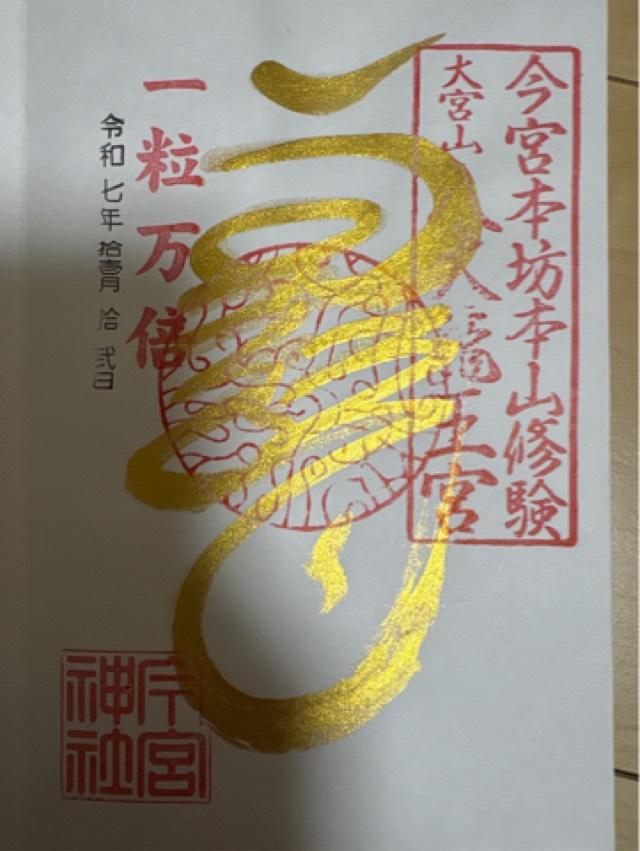 今宮本坊本山修験
大宮山 八大龍王宮
一粒万倍
令和七年拾壹月拾弐日
今宮神社